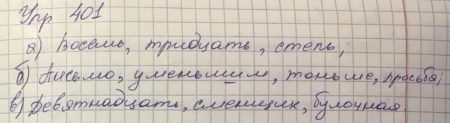 Упр 401
а) Восемь, тридцать, степь,
б) Письмо, уменьшим, тоньше, просьба,
в) Девятнадцать, сменщик, булочная.